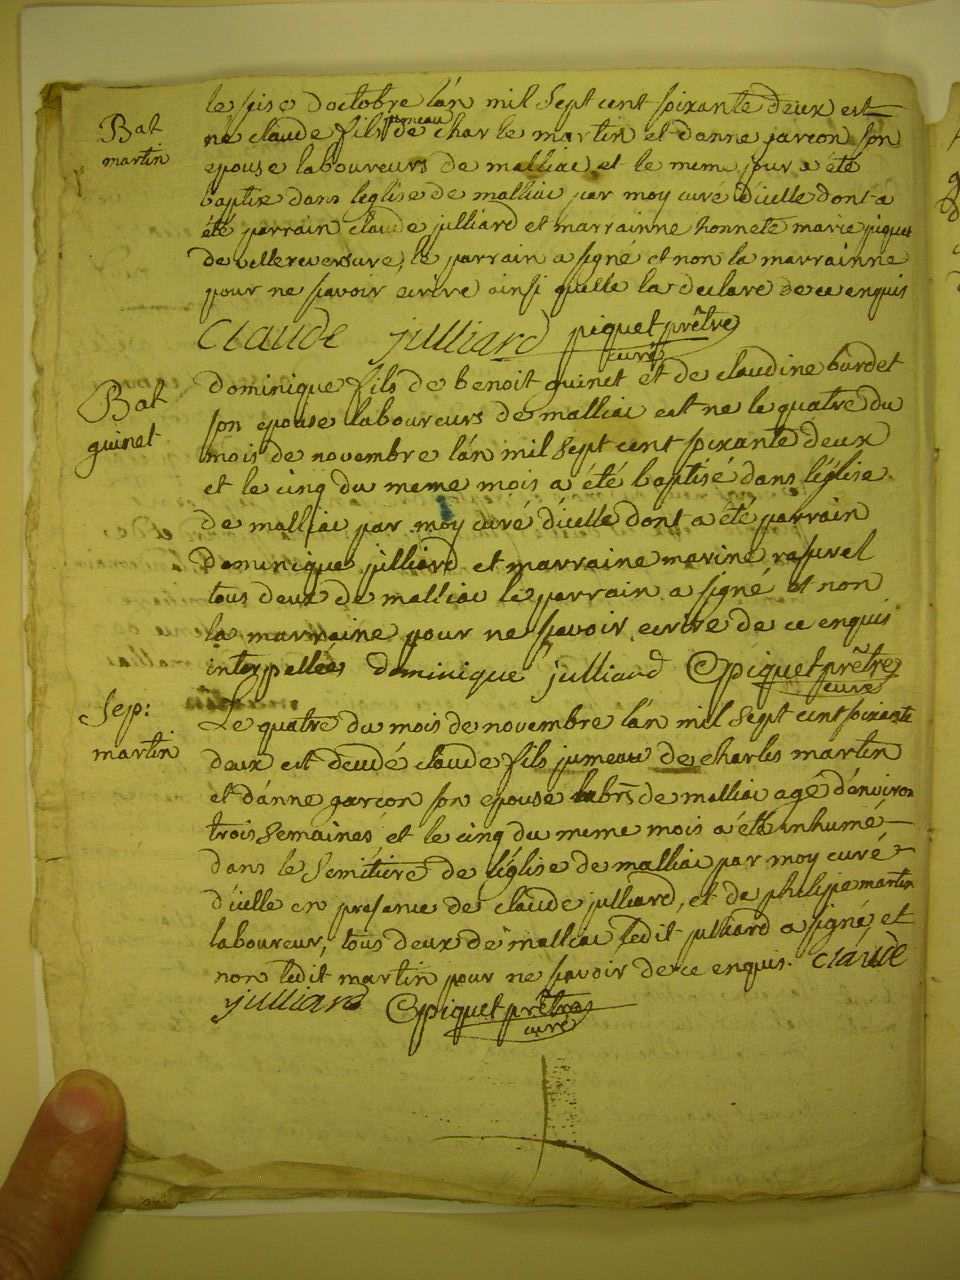 Bat
martin
le sise d'octobre lán mil sept cent soixante deux est
né claude fils jumeau de charle martin et danne jarcon son
epouse laboureurs de malliac et le meme jour a été
baptise dans leglise de malliac par moy curé dicelle dont a
été parrain claude julliard et marrainne honnete marie piquet
de villereversure, le parrain a signé et non la marrainne
pour ne savoir ecrire ainsi quelle la declare de ce enquis
claude julliard piquet prêtre
curé
Bat
guinet
dominique fils de benoit guinet et de claudine burdet
son epouse laboureurs de malliac est ne le quatre du
mois de novembre lán mil sept cent soixante deux
et le cinq du meme mois a été baptisé dans léglise
de malliac par moy curé dicelle dont a été parrain
dominique julliard et marraine marine rasurel
tous deux de malliac le parrain a signé et non
la marraine pour ne savoir ecrire de ce enquis
interpellées dominique julliard piquet prêtre
curé
Sep:
martin
Le quatre du mois de novembre lán mil sept cent soixante
deux est decedé claude fils jumeau de charles martin
et dánne garçon son epouse labrs de malliac agé d'environ
trois semaines et le cinq du meme mois a été inhumé
dans le semitiere de léglise de malliac par moy curé
dicelle en presance de claude julliard, et de philipe martin
laboureur, tous deux de malliac ledit julliard a signé et
non ledit martin pour ne savoir de ce enquis. claude
julliard piquet prêtre
curé